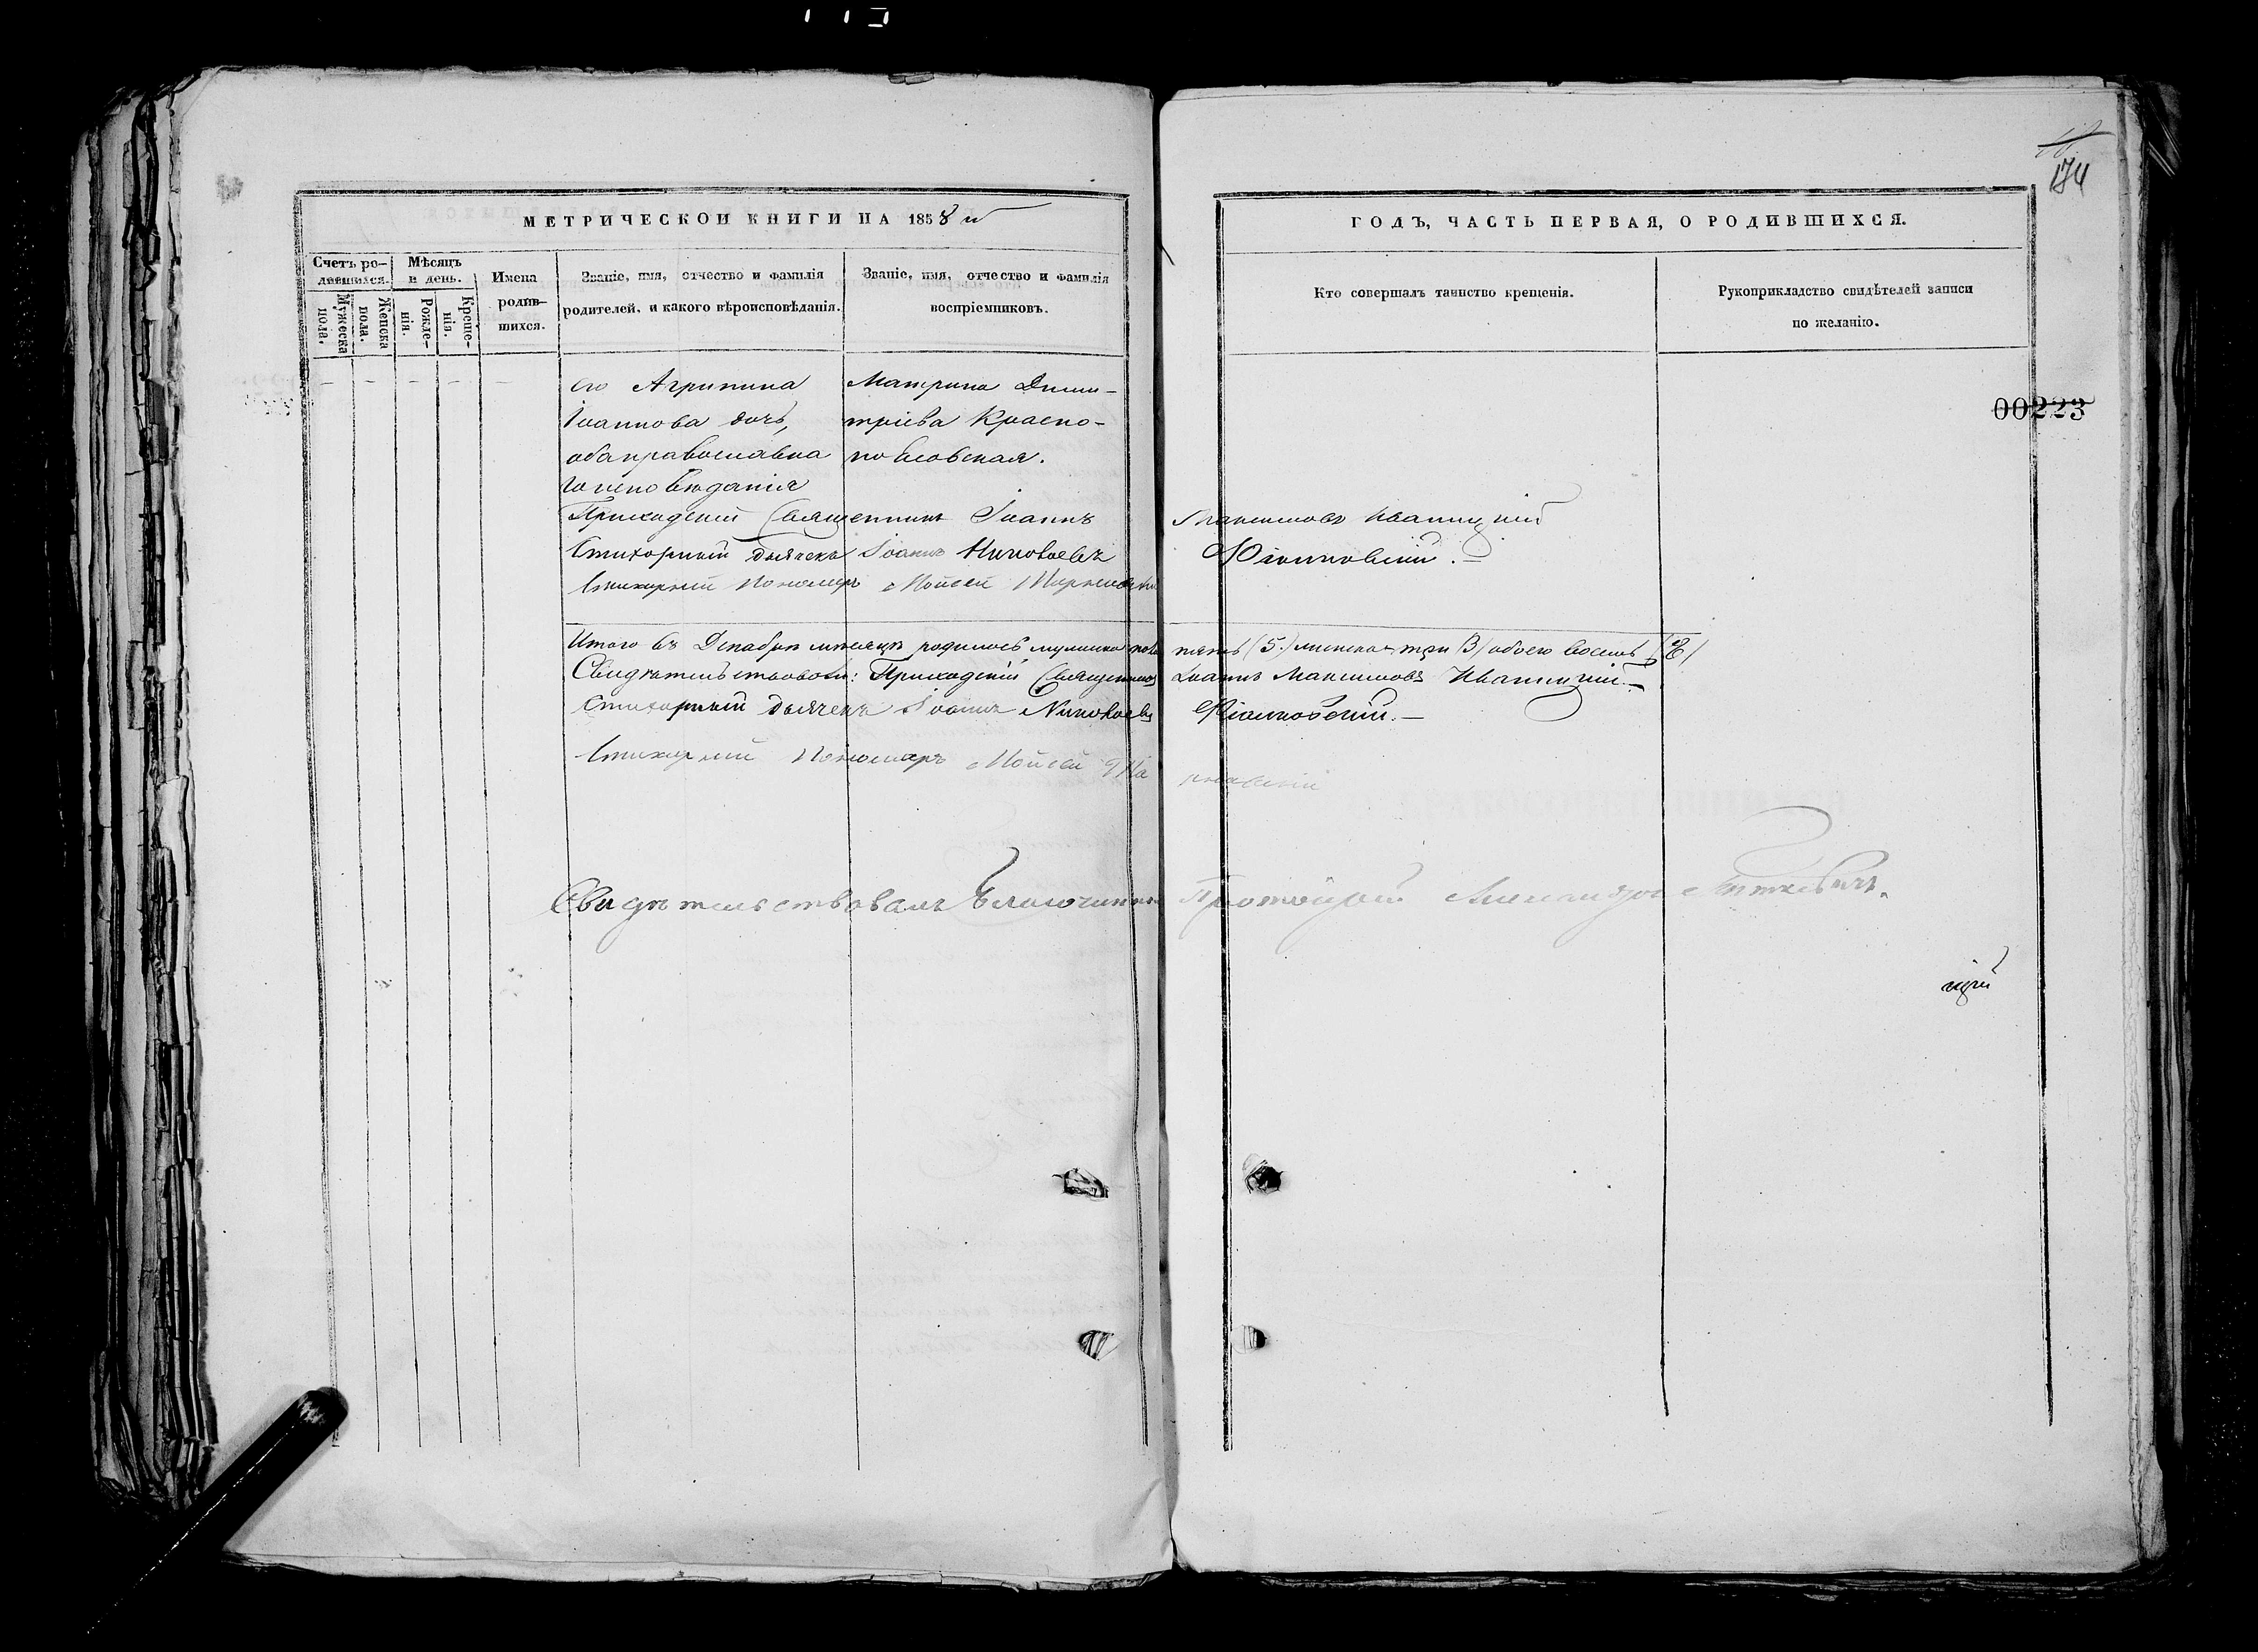 174
МЕТРИЧЕСКОЙ КНИГИ НА 1858 й
ГОДЪ, ЧАСТЬ ПЕРВАЯ, О РОДИВШИХСЯ.
Счетъ ро-
дившихся.
Мужеска
пола.
Женска
пола.
Мѣсяцъ
и день.
Рожде-
нія.
Креще-
нія.
Имена
родив-
шихся.
Званіе, имя, отчество и фамилія
родителей, и какого вѣроисповѣданія.
Званіе, имя, отчество и фамилія
воспріемниковъ.
Кто совершалъ таинство крещенія.
Рукоприкладство свидѣтелей записи
по желанію.
его Агрипина
Іоаннова дочь,
оба православна
го исповѣданія
Матрина Дими-
тріева Красно-
повская.
00223
Приходскій Священникъ Іоаннъ Максимовъ Иваницкій
Стихарный дьячекъ Іоаннъ Николаевъ
Стихарный Пономарь Мойсей
Итого въ Декабрѣ мѣсяцѣ родилось мужеска пола пять (5) женска три (3) обоего восемь (8)
Свидѣтельствовали: Приходскій Священникъ Іоаннъ Максимовъ Иваницкій
Стихарный дьячекъ Іоаннъ Николаевъ
Стихарный Пономарь Мойсей
Свидѣтельствовалъ Благочинный Протоіерей Александръ